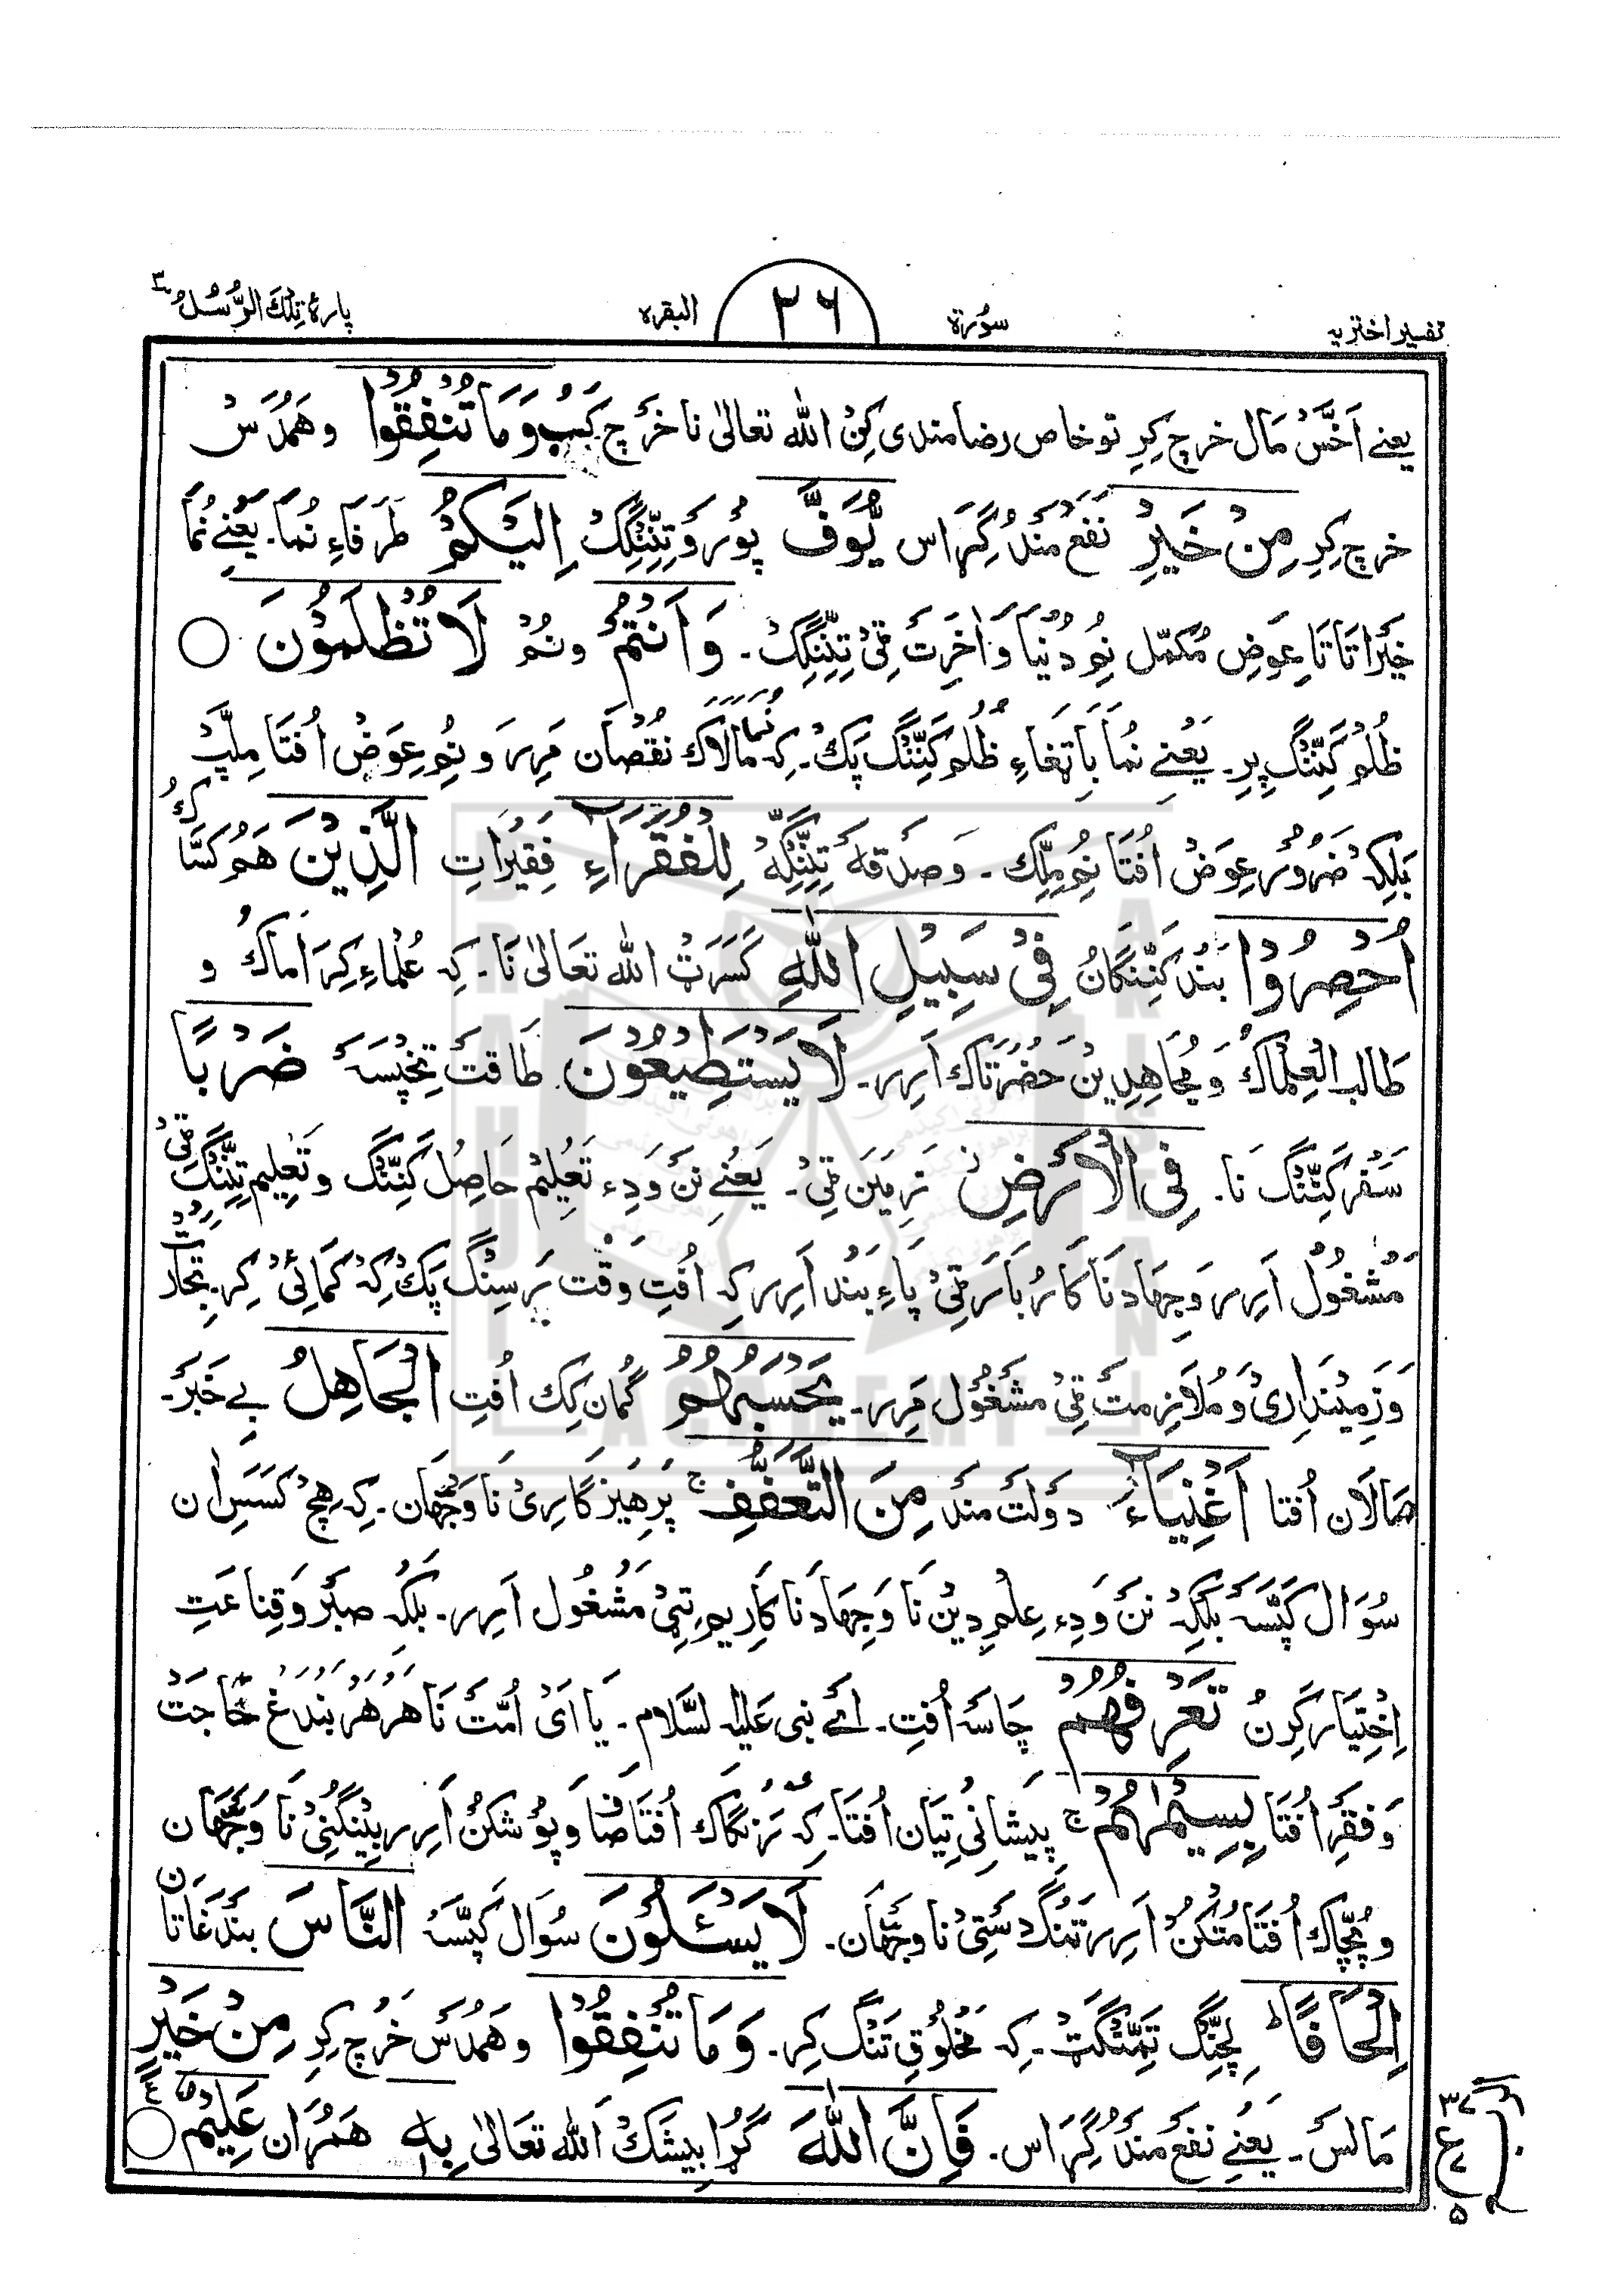 تفسیر اختریه سُورة ٢٦ البقره پارهٔ تِلکَ الرُّسُلُ ٣
یعنے اَخَّسْ مَال خرچ کِرِ تو خاص رضامندی کِنْ اللّٰه تعالیٰ نا خَرْچ کَبْ وَمَا تُنْفِقُوْا وهَمُدَسْ
خرچ کِرِ مِنْ خَيْرٍ نَفَع مَندُ گِرَاس يُّوَفَّ پُوْرَو تِنِّنگِکْ اِلَيْكُمْ طَرَفاءِ نُمَا۔ یَعْنے نُمَا
خَیْرَاتَاتَا عِوَضِ مُکَمّل نِم دُنْیَا وَ اٰخِرَتْ قِیْ تِنِّنگِکْ۔ وَاَنْتُمْ ونُمْ لَا تُظْلَمُوْنَ ○
ظُلُمْ کَنِّنْگ پِرِ۔ یَعْنے نُمَا بَاتِغَاءِ ظُلُم کَنِّنْگ پَکْ۔ کِه نُمَا مَالَاک نقُصَان مَرِرَ و نِم عِوَضْ اُفتَا مِلِپْرْ
بَلِکِه ضَرُوْر عِوَضْ اُفْتَا نُم مِلِّک۔ وَصَدَقه تِنِّنگِهْ لِلْفُقَرَآءِ فِقِیْرَاتِ الَّذِيْنَ هَمُ کَسَّاکْ
اُحْصِرُوْا بَنْد کَنِّنْگانُ فِيْ سَبِيْلِ اللّٰهِ کَسَرَتْ اللّٰه تَعَالیٰ نَا۔ کِه عُلْمَاءِ کِرَامَاکْ و
طَالبُ الْعِلْمَاکْ وَ مُجَاهِدِیْنْ حَضْرَتَاک اَرِر۔ لَا يَسْتَطِيْعُوْنَ طَاقتْ تِخِپْسَهْ ضَرْبًا
سَفَر کَنِّنْگ نَا۔ فِي الْاَرْضِ زَمِیَن قِیْ۔ یَعْنے نَن وَدِء تَعْلِیْم حَاصِلْ کَنِّنْگ وتَعْلِیم تِنِّنْگ قِیْ
مَشْغُوْل اَرِر وَجِهَاد نَا کَارُبَار قِیْ پَاءِ بَنْد اَرِر کِه اُفتِ وَقْت رَسِنْگ پَکْ کِهْ کَمَائِیْ کِر۔ تِجَارَتْ
وَزَمِیْنْدَارِیْ وَ مُلَازِمَتْ قِیْ مَشْغُوْل مَرِر۔ يَحْسَبُهُمُ گُمَان کِک اُفْتِ الْجَاهِلُ بے خَبَرْ۔
حَالَان اُفتا اَغْنِيَآءَ دَوْلَتْ مَند مِنَ التَّعَفُّفِ ج پَرهِیْز گَارِیْ نَا وَجْهَان۔ کِه هِچْ کَسَسِ اٰن
سُوَال کَپَّسَهْ بَلکِهْ نَن وَدِء عِلْمِ دِیْن نَا وَجِهَاد نَا کَارِیْمِ تِیْ مَشْغُول اَرِر۔ بَلکِه صَبْرَ وَقِنَاعَتِ
اِخْتِیَار کَرِنُ تَعْرِفُهُمْ چَاسَهْ اُفْتِ۔ اَے نبی عَلَیْهِ السَّلَام۔ یَا اَیْ اُمَّتْ نَا هَرْهَرْ بَنْدَغْ حَاجَتْ
وَفَقرِ اُفْتَا بِسِيْمٰهُمْ ج پِیْشَانِیْ تِیَان اُفْتَا۔ کِه رَنگَاک اُفْتَا صَاف وَپُوشکُنْ اَرِر بِیْنگِنِیْ نَا وَجْهَان
و پُچَّاک اُفْتَا مُتْکُنْ اَرِر تَنگ دَسْتِیْ نَا وَجْهَان۔ لَا يَسْـَٔلُوْنَ سُوَال کَپَّسَهْ النَّاسَ بَنْدَغَاتَان
اِلْحَافًا ط لِچِّنگ تَمِتِّنْگتْ۔ کِه مَخْلُوْقِ تَنگ کِر۔ وَمَا تُنْفِقُوْا وهَمُدَسْ خَرْچ کِرِ مِنْ خَيْرٍ
مَالَسْ۔ یَعْنے نَفَع مَندُ گِرَاس۔ فَاِنَّ اللّٰهَ گُڑَا بِیشَکْ اَللّٰه تَعَالیٰ بِهٖ هَمُرَان عَلِيْمٌ ○
٣٧
ع
٥